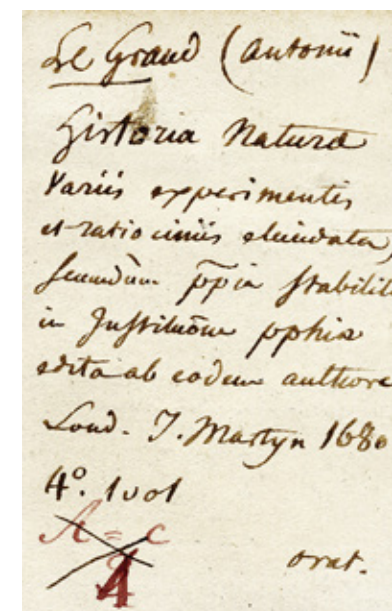 Le Grand (antonii)
Historia Naturæ
Variis experimentis
et ratiociniis elucidata,
secundùm p̄p̄ia stabilit
in Justituōne pphiæ
edita ab eodem authore
Lond. J. Martyn 1680
4°. 1 vol
A = c
4
orat.